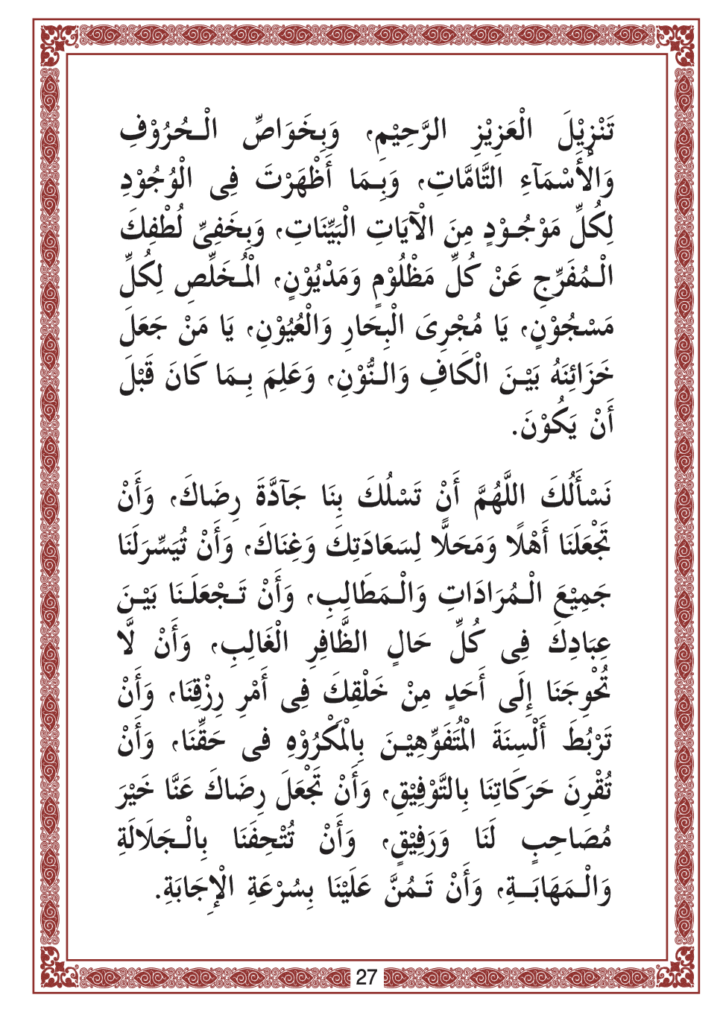 تَنْزِيْلَ الْعَزِيْزِ الرَّحِيْمِ، وَبِخَوَاصِّ الْحُرُوْفِ
وَالْأَسْمَآءِ التَّامَّاتِ، وَبِمَا أَظْهَرْتَ فِى الْوُجُوْدِ
لِكُلِّ مَوْجُوْدٍ مِنَ الْآيَاتِ الْبَيِّنَاتِ، وَبِخَفِىِّ لُطْفِكَ
الْمُفَرِّجِ عَنْ كُلِّ مَظْلُوْمٍ وَمَدْيُوْنٍ، الْمُخَلِّصِ لِكُلِّ
مَسْجُوْنٍ، يَا مُجْرِىَ الْبِحَارِ وَالْعُيُوْنِ، يَا مَنْ جَعَلَ
خَزَائِنَهُ بَيْنَ الْكَافِ وَالنُّوْنِ، وَعَلِمَ بِمَا كَانَ قَبْلَ
أَنْ يَكُوْنَ.
نَسْأَلُكَ اللَّهُمَّ أَنْ تَسْلُكَ بِنَا جَآدَّةَ رِضَاكَ، وَأَنْ
تَجْعَلَنَا أَهْلًا وَمَحَلًّا لِسَعَادَتِكَ وَغِنَاكَ، وَأَنْ تُيَسِّرَلَنَا
جَمِيْعَ الْمُرَادَاتِ وَالْمَطَالِبِ، وَأَنْ تَجْعَلَنَا بَيْنَ
عِبَادِكَ فِى كُلِّ حَالٍ الظَّافِرِ الْغَالِبِ، وَأَنْ لَّا
تُحْوِجَنَا إِلَى أَحَدٍ مِنْ خَلْقِكَ فِى أَمْرِ رِزْقِنَا، وَأَنْ
تَرْبُطَ أَلْسِنَةَ الْمُتَفَوِّهِيْنَ بِالْمَكْرُوْهِ فى حَقِّنَا، وَأَنْ
تُقْرِنَ حَرَكَاتِنَا بِالتَّوْفِيْقِ، وَأَنْ تَجْعَلَ رِضَاكَ عَنَّا خَيْرَ
مُصَاحِبٍ لَنَا وَرَفِيْقٍ، وَأَنْ تُتْحِفَنَا بِالْجَلَالَةِ
وَالْمَهَابَةِ، وَأَنْ تَمُنَّ عَلَيْنَا بِسُرْعَةِ الْإِجَابَةِ.
27